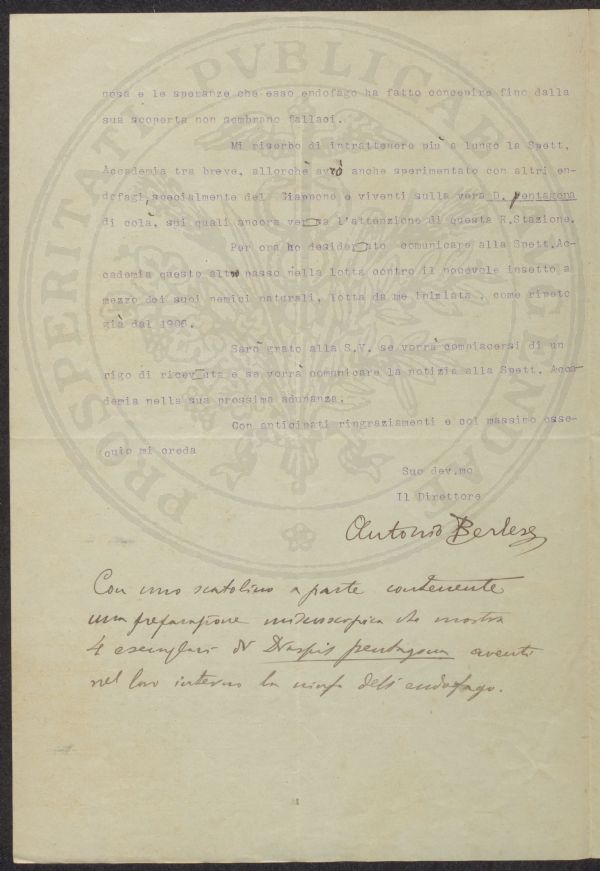 PROSPERITATI PVBLICAE AVGENDAE
cosa e le speranze che esso endofago ha fatto concepire fino dalla
sua scoperta non sembrano fallaci.
Mi riserbo di intrattenere più a lungo la Spett.
Accademia tra breve, allorchè avrò anche sperimentato con altri en-
dofagi, specialmente del Giappone e viventi sulla vera D. pentagona
di colà, sui quali ancora versa l'attenzione di questa R.Stazione.
Per ora ho desiderato comunicare alla Spett.Ac-
cademia questo altro passo nella lotta contro il nocevole insetto a
mezzo dei suoi nemici naturali, lotta da me iniziata , come ripeto
già dal 1906.
Sarò grato alla S.V. se vorrà compiacersi di un
rigo di ricevuta e se vorrà comunicare la notizia alla Spett. Acca-
demia nella sua prossima adunanza.
Con anticipati ringraziamenti e col massimo osse-
quio mi creda
Suo dev.mo
Il Direttore
Antonio Berlese
Con uno scatolino a parte contenente
una preparazione microscopica che mostra
4 esemplari di Diaspis pentagona aventi
nel loro interno la ninfa dell'endofago.